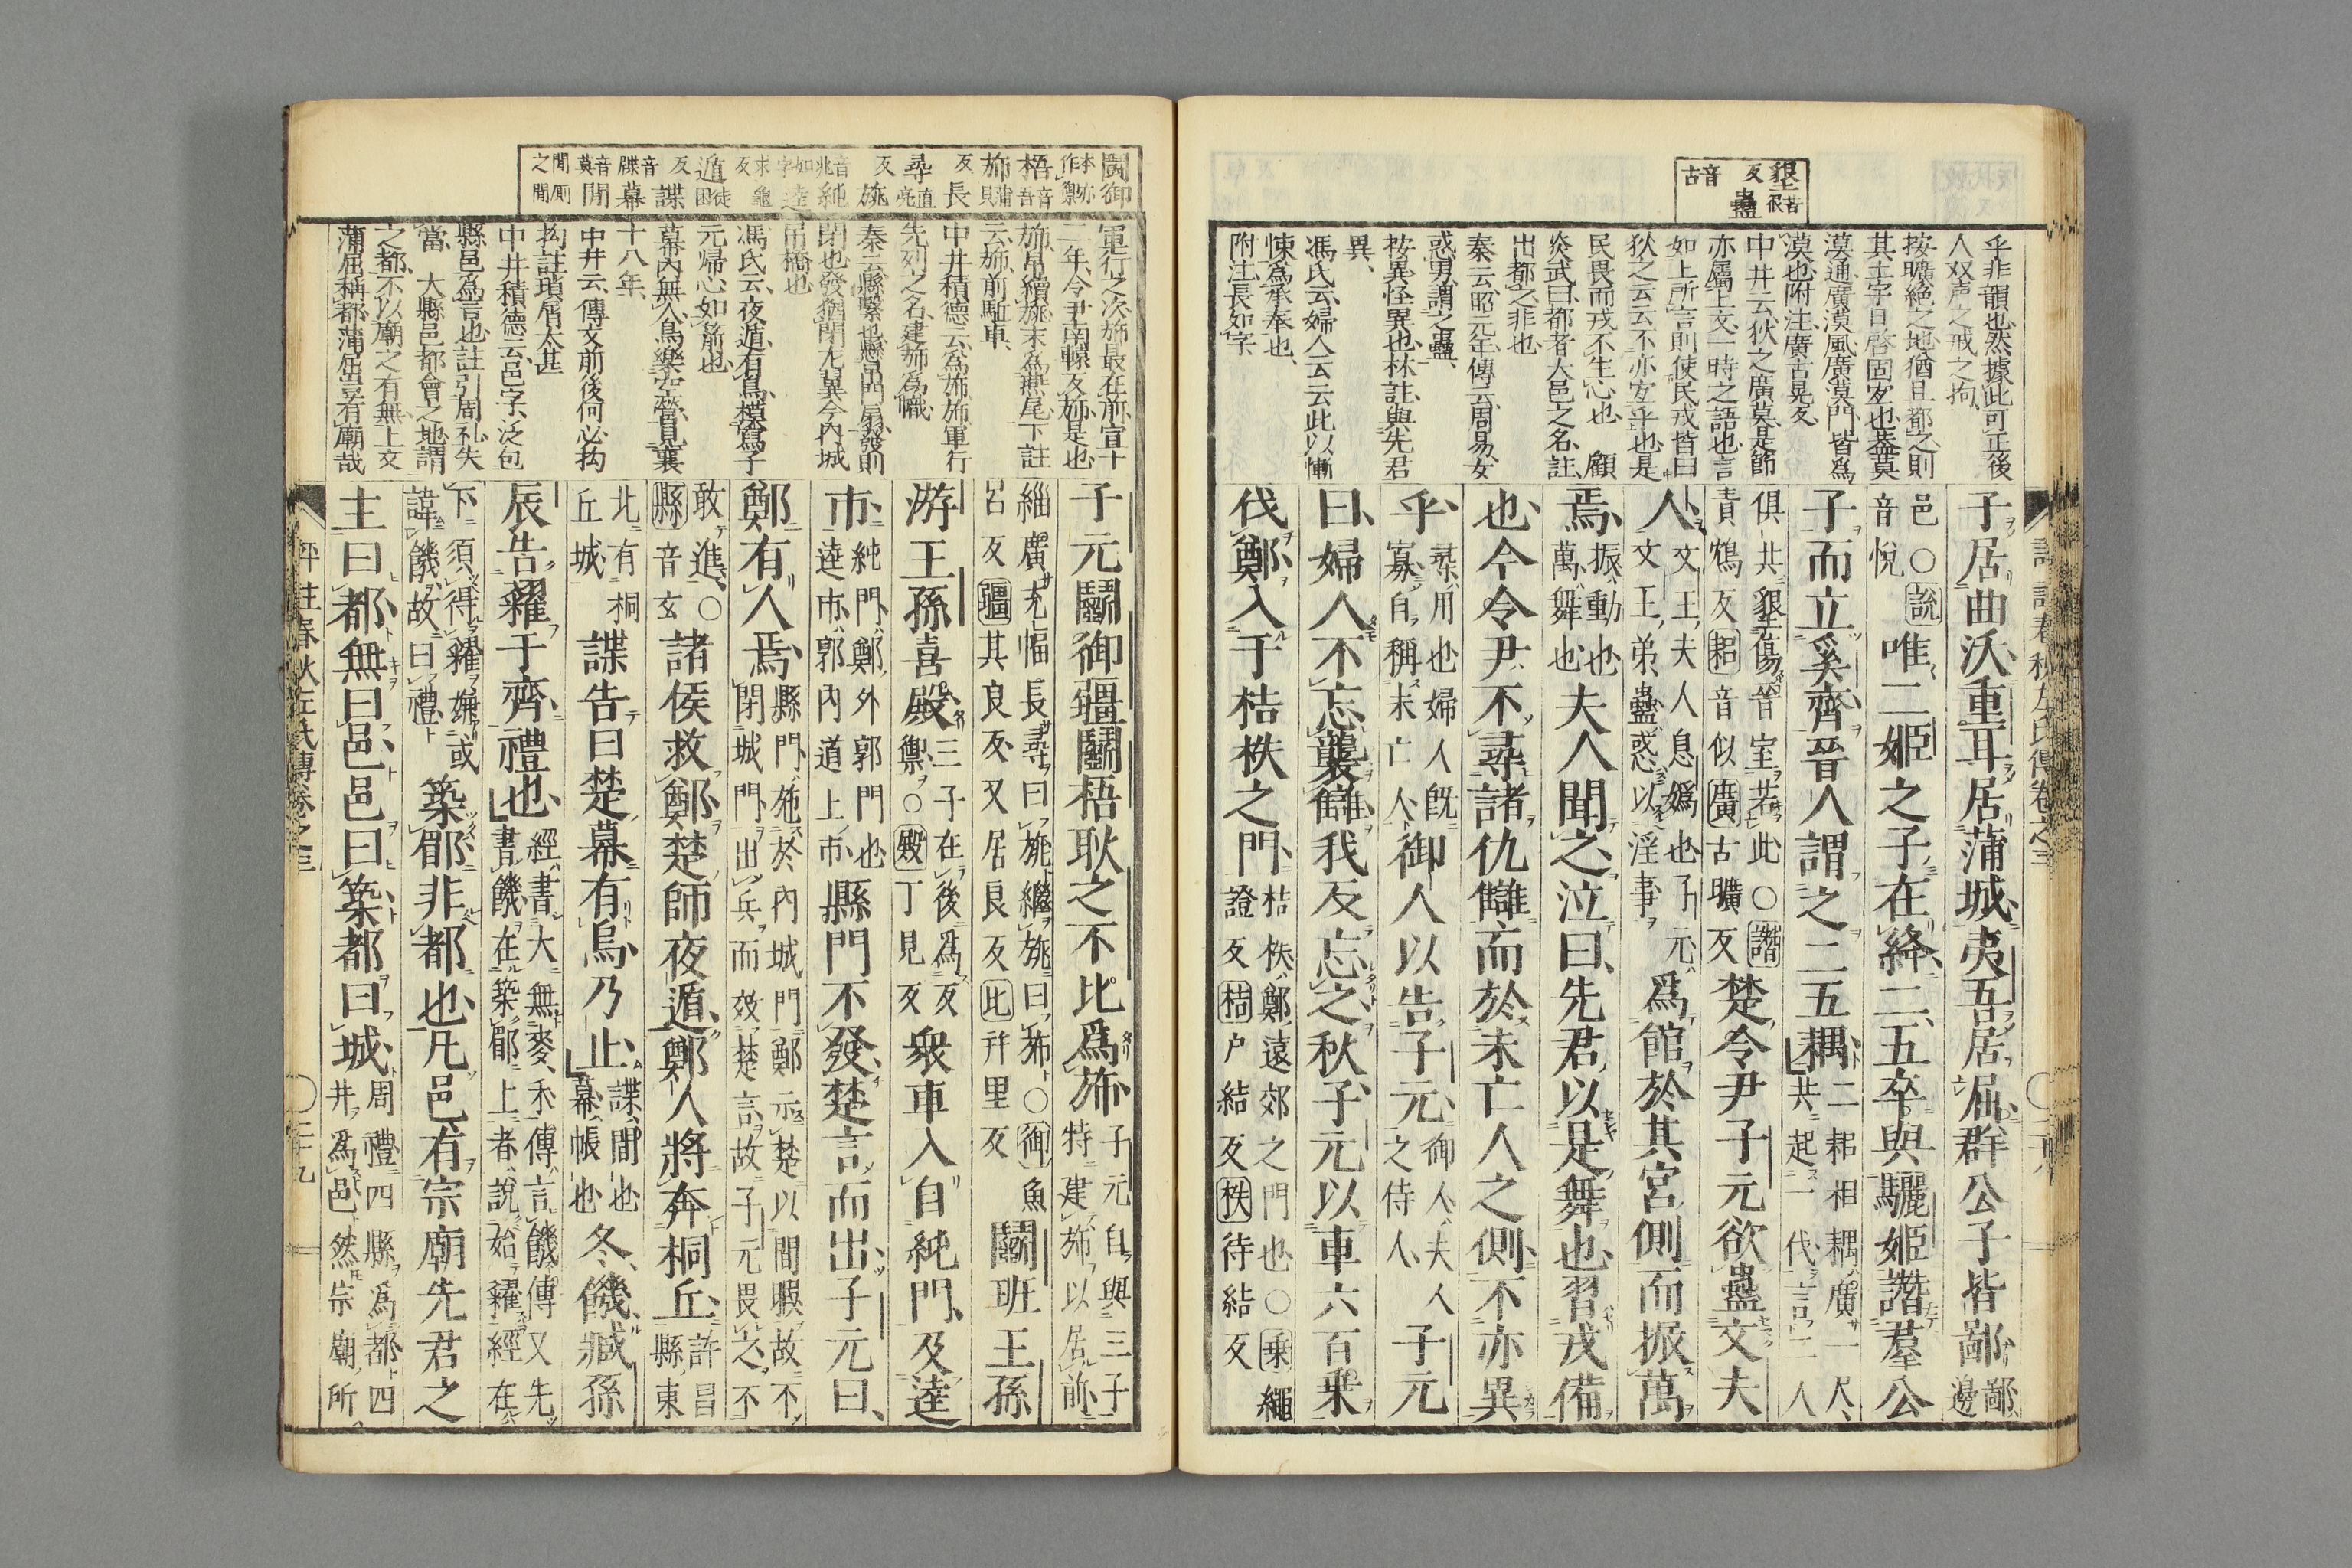 墾苦很
反
蠱
音古
乎非韻也然據此可正後
人双声之戒之拘
按曠絶之地猶且都之則
其土宇日啓固宜也葢莫
漠通廣漠風廣莫門皆爲
漠也附注廣古晃反
中井云狄之廣莫是節
亦屬上文一時之語也言
如上所言則使民戎皆曰
狄之云云不亦宜乎也是
民畏而戎不生心也 顧
炎武曰都者大邑之名註
出都之非也
秦云昭元年傳云周易女
惑男謂之蠱
按異怪異也林註與先君
異
馮氏云婦人云云此以慚
悚爲承奉也
附注長如字
子居曲沃重耳居蒲城夷吾居屈群公子皆鄙鄙邊
邑○說音悅唯二姬之子在絳二五卒與驪姬譖羣公
子而立奚齊晉人謂之二五耦二耜相耦廣一尺共起一伐言二人
俱共墾傷晉室若此○譖責鴆反耜音似廣古曠反楚令尹子元欲蠱文夫
人文王夫人息嬀也子元文王弟蠱惑以淫事爲館於其宮側而振萬
焉振動也萬舞也夫人聞之泣曰先君以是舞也習戎備
也今令尹不尋諸仇讎而於未亡人之側不亦異
乎尋用也婦人既寡自稱未亡人御人以告子元御人夫人之侍人子元
曰婦人不忘襲讎我反忘之秋子元以車六百乘
伐鄭入于桔柣之門桔柣鄭遠郊之門也○乘繩證反桔戶結反柣待結反
鬬御本亦作禦
梧音吾
斾蒲貝反
長
尋直亮反
旐音兆
純如字
逵求龜反
遁徒困反
諜音牒
幕音莫
閒間厠之間
軍行之次斾最在前宣十
二年令尹南轅反斾是也
斾帛續旐末爲燕尾下註
云斾前駈車
中井積德云爲斾斾軍行
先列之名建斾爲幟
秦云縣繋也懸吊門扇發則
閉也發猶閉尨翼今内城
吊橋也
馮氏云夜遁有烏模寫子
元歸心如箭也
幕内無人烏樂空營見襄
十八年
中井云傳文前後何必拘
拘註瑣屑太甚
中井積德云邑字泛包
縣邑爲言也註引周礼失
當 大縣邑都會之地謂
之都不以廟之有無上文
蒲屈稱都蒲屈豈有廟哉
子元鬬御疆鬬梧耿之不比爲斾子元自與三子特建斾以居前
緇廣充幅長尋曰旐繼旐曰斾○御魚呂反疆其良反又居良反比幷里反鬬班王孫
游王孫喜殿三子在後爲反禦○殿丁見反衆車入自純門及逵
市純門鄭外郭門也逵市郭內道上市縣門不發楚言而出子元曰
鄭有人焉縣門施於內城門鄭示楚以閒暇故不閉城門出兵而效楚言故子元畏之不
敢進○縣音玄諸侯救鄭楚師夜遁鄭人將奔桐丘許昌縣東
北有桐丘城諜告曰楚幕有烏乃止諜間也幕帳也冬饑臧孫
辰告糴于齊禮也經書大無麥禾傳言饑傳又先書饑在築郿上者說始糴經在
下須得糴嫌或諱饑故曰禮築郿非都也凡邑有宗廟先君之
主曰都無曰邑邑曰築都曰城周禮四縣爲都四井爲邑然宗廟所